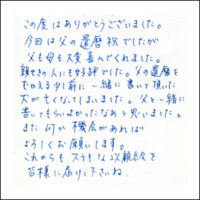 この度はありがとうございました。
今回は父の還暦祝でしたが
父も母も大変喜んでくれました。
親せきの人にも好評でした。父の還暦を
むかえる少し前に一緒に書いて頂いた
犬が亡くなってしまいました。父と一緒に
書いてもらいよかったなぁと思いました。
また何か機会があれば
よろしくお願いします。
これからもステキな似顔絵を
皆様に届けて下さいね